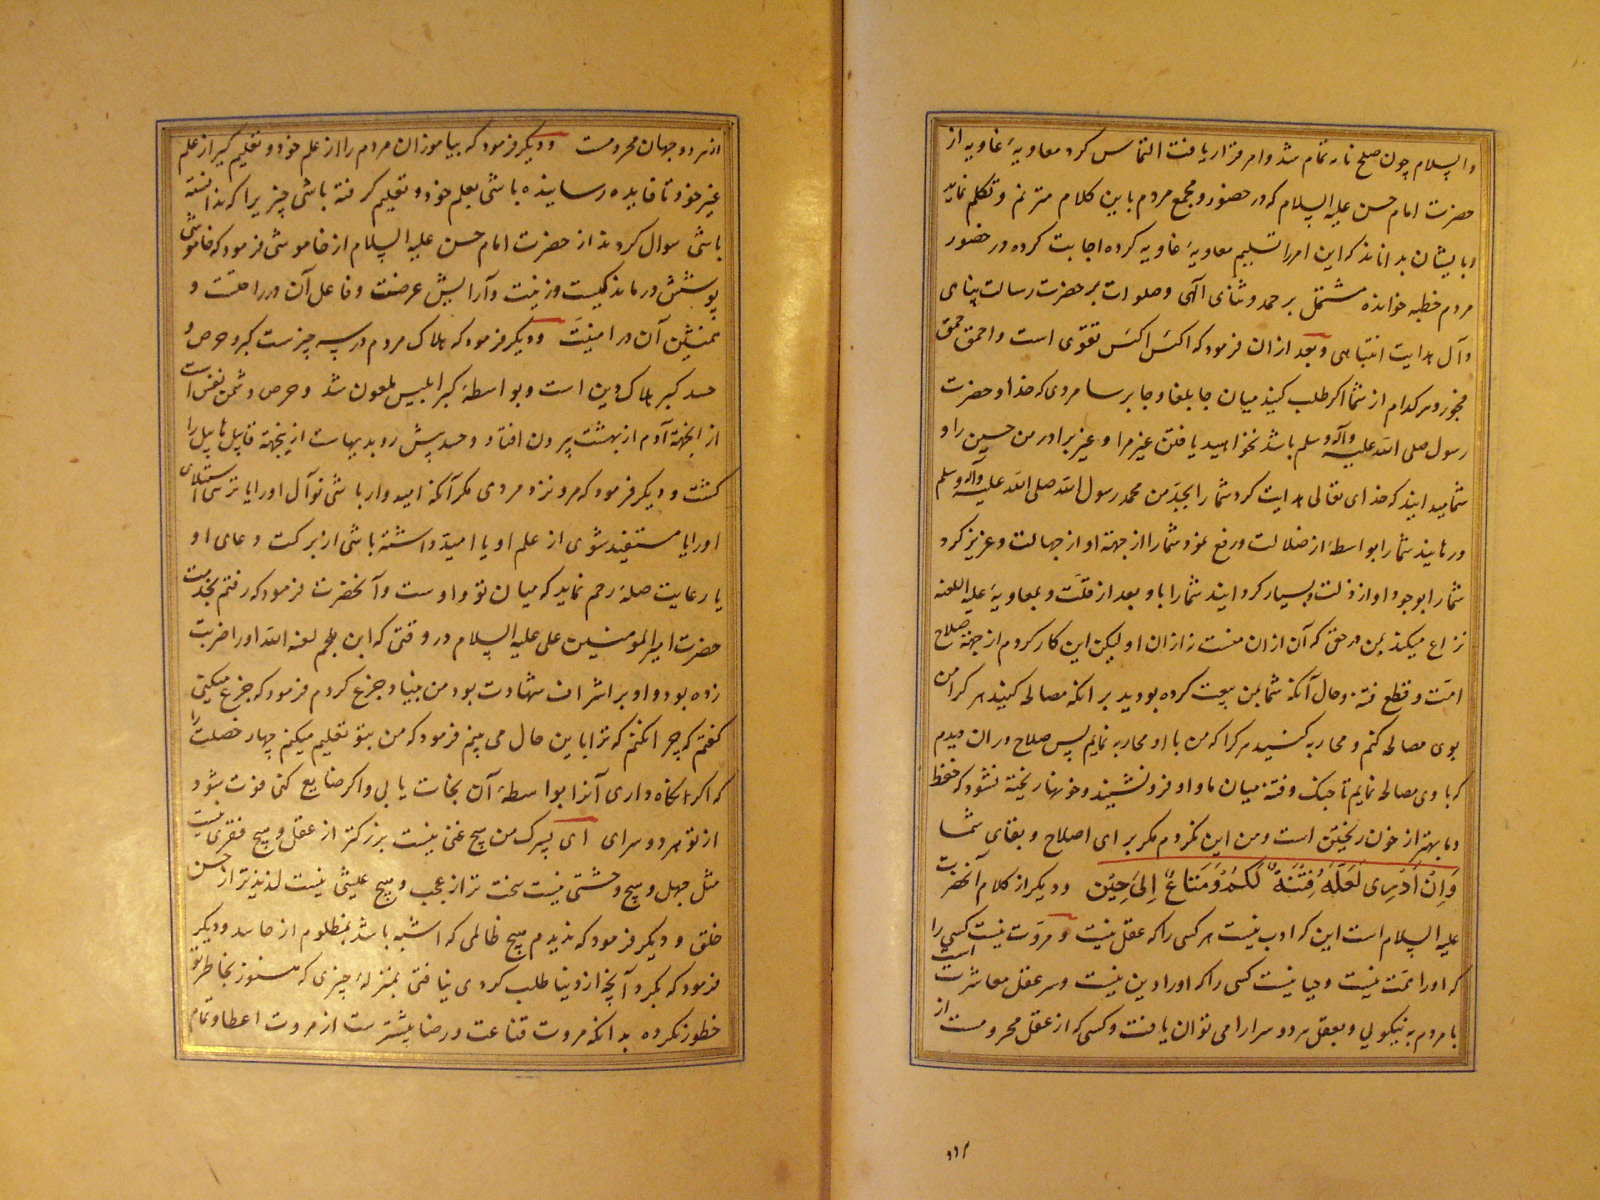 والسلام چون صلح نامه تمام شد و امر قرار یافت التماس کرد معاویهٔ غاویه از
حضرت امام حسن علیه السلام که در حضور و مجمع مردم باین کلام مترنم و تکلم نماید
و بایشان بداناند که این امر را تسلیم معاویهٔ غاویه کرده اجابت کرده در حضور
مردم خطبه خوانده مشتمل بر حمد و ثنای الهی و صلوات بر حضرت رسالت پناهی
و آل هدایت انتباهی و بعد از ان فرمود که اکیَس اکیَس تقوی است و احمق حمق
فجور و هر کدام از شما اکر طلب کنید میان جابلقا و جابرسا مردی که خذ او حضرت
رسول صلی الله علیه وآله وسلم باشد نخواهید یافتن غیر مرا و غیر برادر من حسین را و
شما میدانید که خدای تعالی هدایت کرد شما را بجد من محمد رسول الله صلی الله علیه وآله وسلم
و رهانید شما را بواسطهٔ از ضلالت و رفع نمود شما را از جهة او از جهالت و عزیز کرد
شما را بوجود او از ذلت و بسیار کردانید شما را باو بعد از قلّت و بمعاویهٔ علیه اللعنه
نزاع میکند بمن در حقی که آن از ان منست نه از ان او لیکن این کار کردم از جهة صلاح
امّت و قطع فتنه و حال آنکه شما بمن بیعت کرده بودید بر انکه مصالحه کنید هر کرا من
بوی مصالحه کنم و محاربه کنید هر کرا که من با او محاربه نمایم پس صلاح در ان دیدم
که با وی مصالحه نمایم تا جنک و فتنه میان ما و او فرو نشیند و خونها ریخته نشود که حفظ
دما بهتر از خون ریختن است و من این نکردم مکر برای اصلاح و بقای شما
وَاِنْ اَدْرِی لَعَلَّهُ فِتْنَةٌ لَکُمْ وَمَتَاعٌ اِلیٰ حِیْن و دیکر از کلام آنحضرت
علیه السلام است این که ادب نیست هر کسی را که عقل نیست و مروّت نیست کسی را
که اورا همّت نیست و حیا نیست کسی را که اورا دین نیست و سر عقل معاشرت است
با مردم به نیکویی و بعقل هر دو سرا را می توان یافت و کسی که از عقل محرومست از
از هر دو جهان محرومست و دیکر فرمود که بیاموزان مردم را از علم خود و تعلیم کیر از علم
غیر خود تا فایده رساینده باشی بعلم خود و تعلیم کرفته باشی چیزیرا که ندانسته
باشی سوال کردند از حضرت امام حسن علیه السلام از خاموشی فرمود که خاموشی
پوشش درماندکیست و زینت و آرایش عرضت و فاعل آن در راحتست و
همنشین آن در امنیّت و دیکر فرمود که هلاک مردم در سه چیزست کبر و حرص و
حسد کبر هلاک دین است و بواسطهٔ کبر ابلیس ملعون شد و حرص دشمن نفس است
از اینجهة آدم از بهشت بیرون افتاد و حسد پیش رو بدیهاست ازینجهة قابیل هابیل را
کشت و دیکر فرمود که مرو نزد مردی مکر آنکه امیدوار باشی نوآل اورا یا ترسی استیلای
اورا یا مستفید شوی از علم او یا امید داشته باشی از برکت دعای او
یا رعایت صلهٔ رحم نماید که میان تو و اوست و آنحضرت فرمود که رفتم بخدمت
حضرت امیرالمومنین علی علیه السلام در وقتی که ابن ملجم لعنه الله اورا ضربت
زده بود و او بر اشراف شهادت بود من بنیاد جزع کردم فرمود که جزع میکنی
کفتم که چرا نکنم که ترا باین حال می بینم فرمود که من بتو تعلیم میکنم چهار خصلت را
که اکر نکاه داری آنرا بواسطهٔ آن نجات یابی و اکر ضایع کنی فوت شود
از تو هر دو سرای ای پسرک من هیچ غنی نیست بزرکتر از عقل و هیچ فقری نیست
مثل جهل و هیچ وحشتی نیست سخت تر از عجب و هیچ عیشی نیست لذیذتر از حسن
خلق و دیکر فرمود که ندیدم هیچ ظالمی که اشبه باشد بمظلوم از حاسد و دیکر
فرمود که بکیر آنچه از دنیا طلب کردی نیافتی بمنزلهٔ چیزی که هنوز بخاطر تو
خطور نکرده بدانکه مروت قناعت و رضا بیشترست از مروت اعطا و تمام
۱۱۲